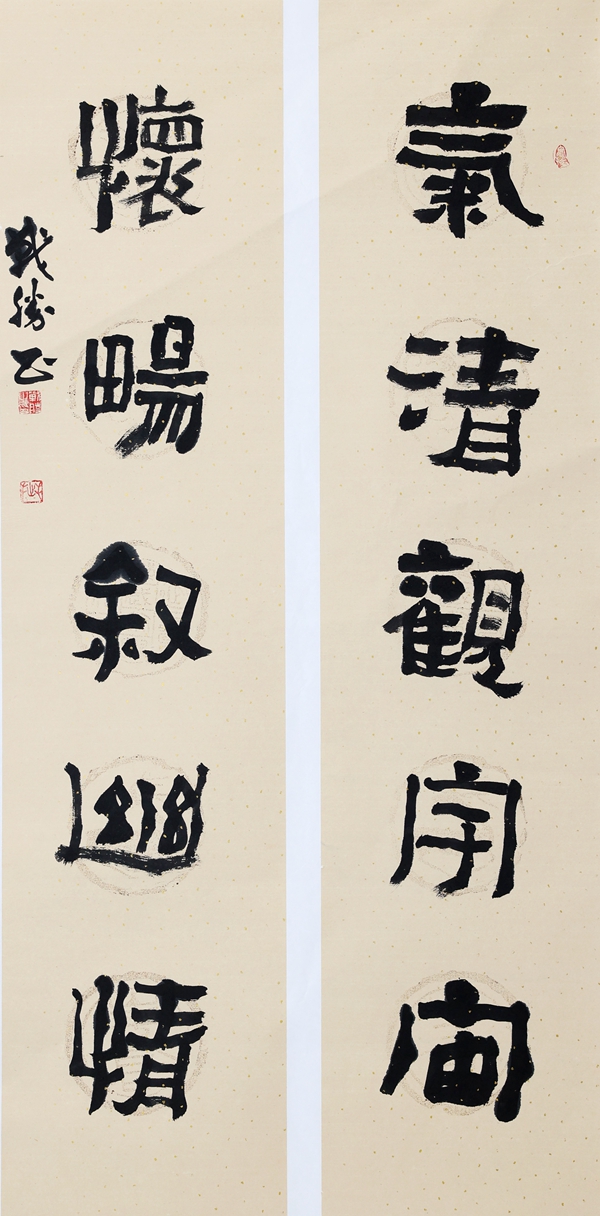 氣清觀宇宙
懷暢叙幽情
戰勝